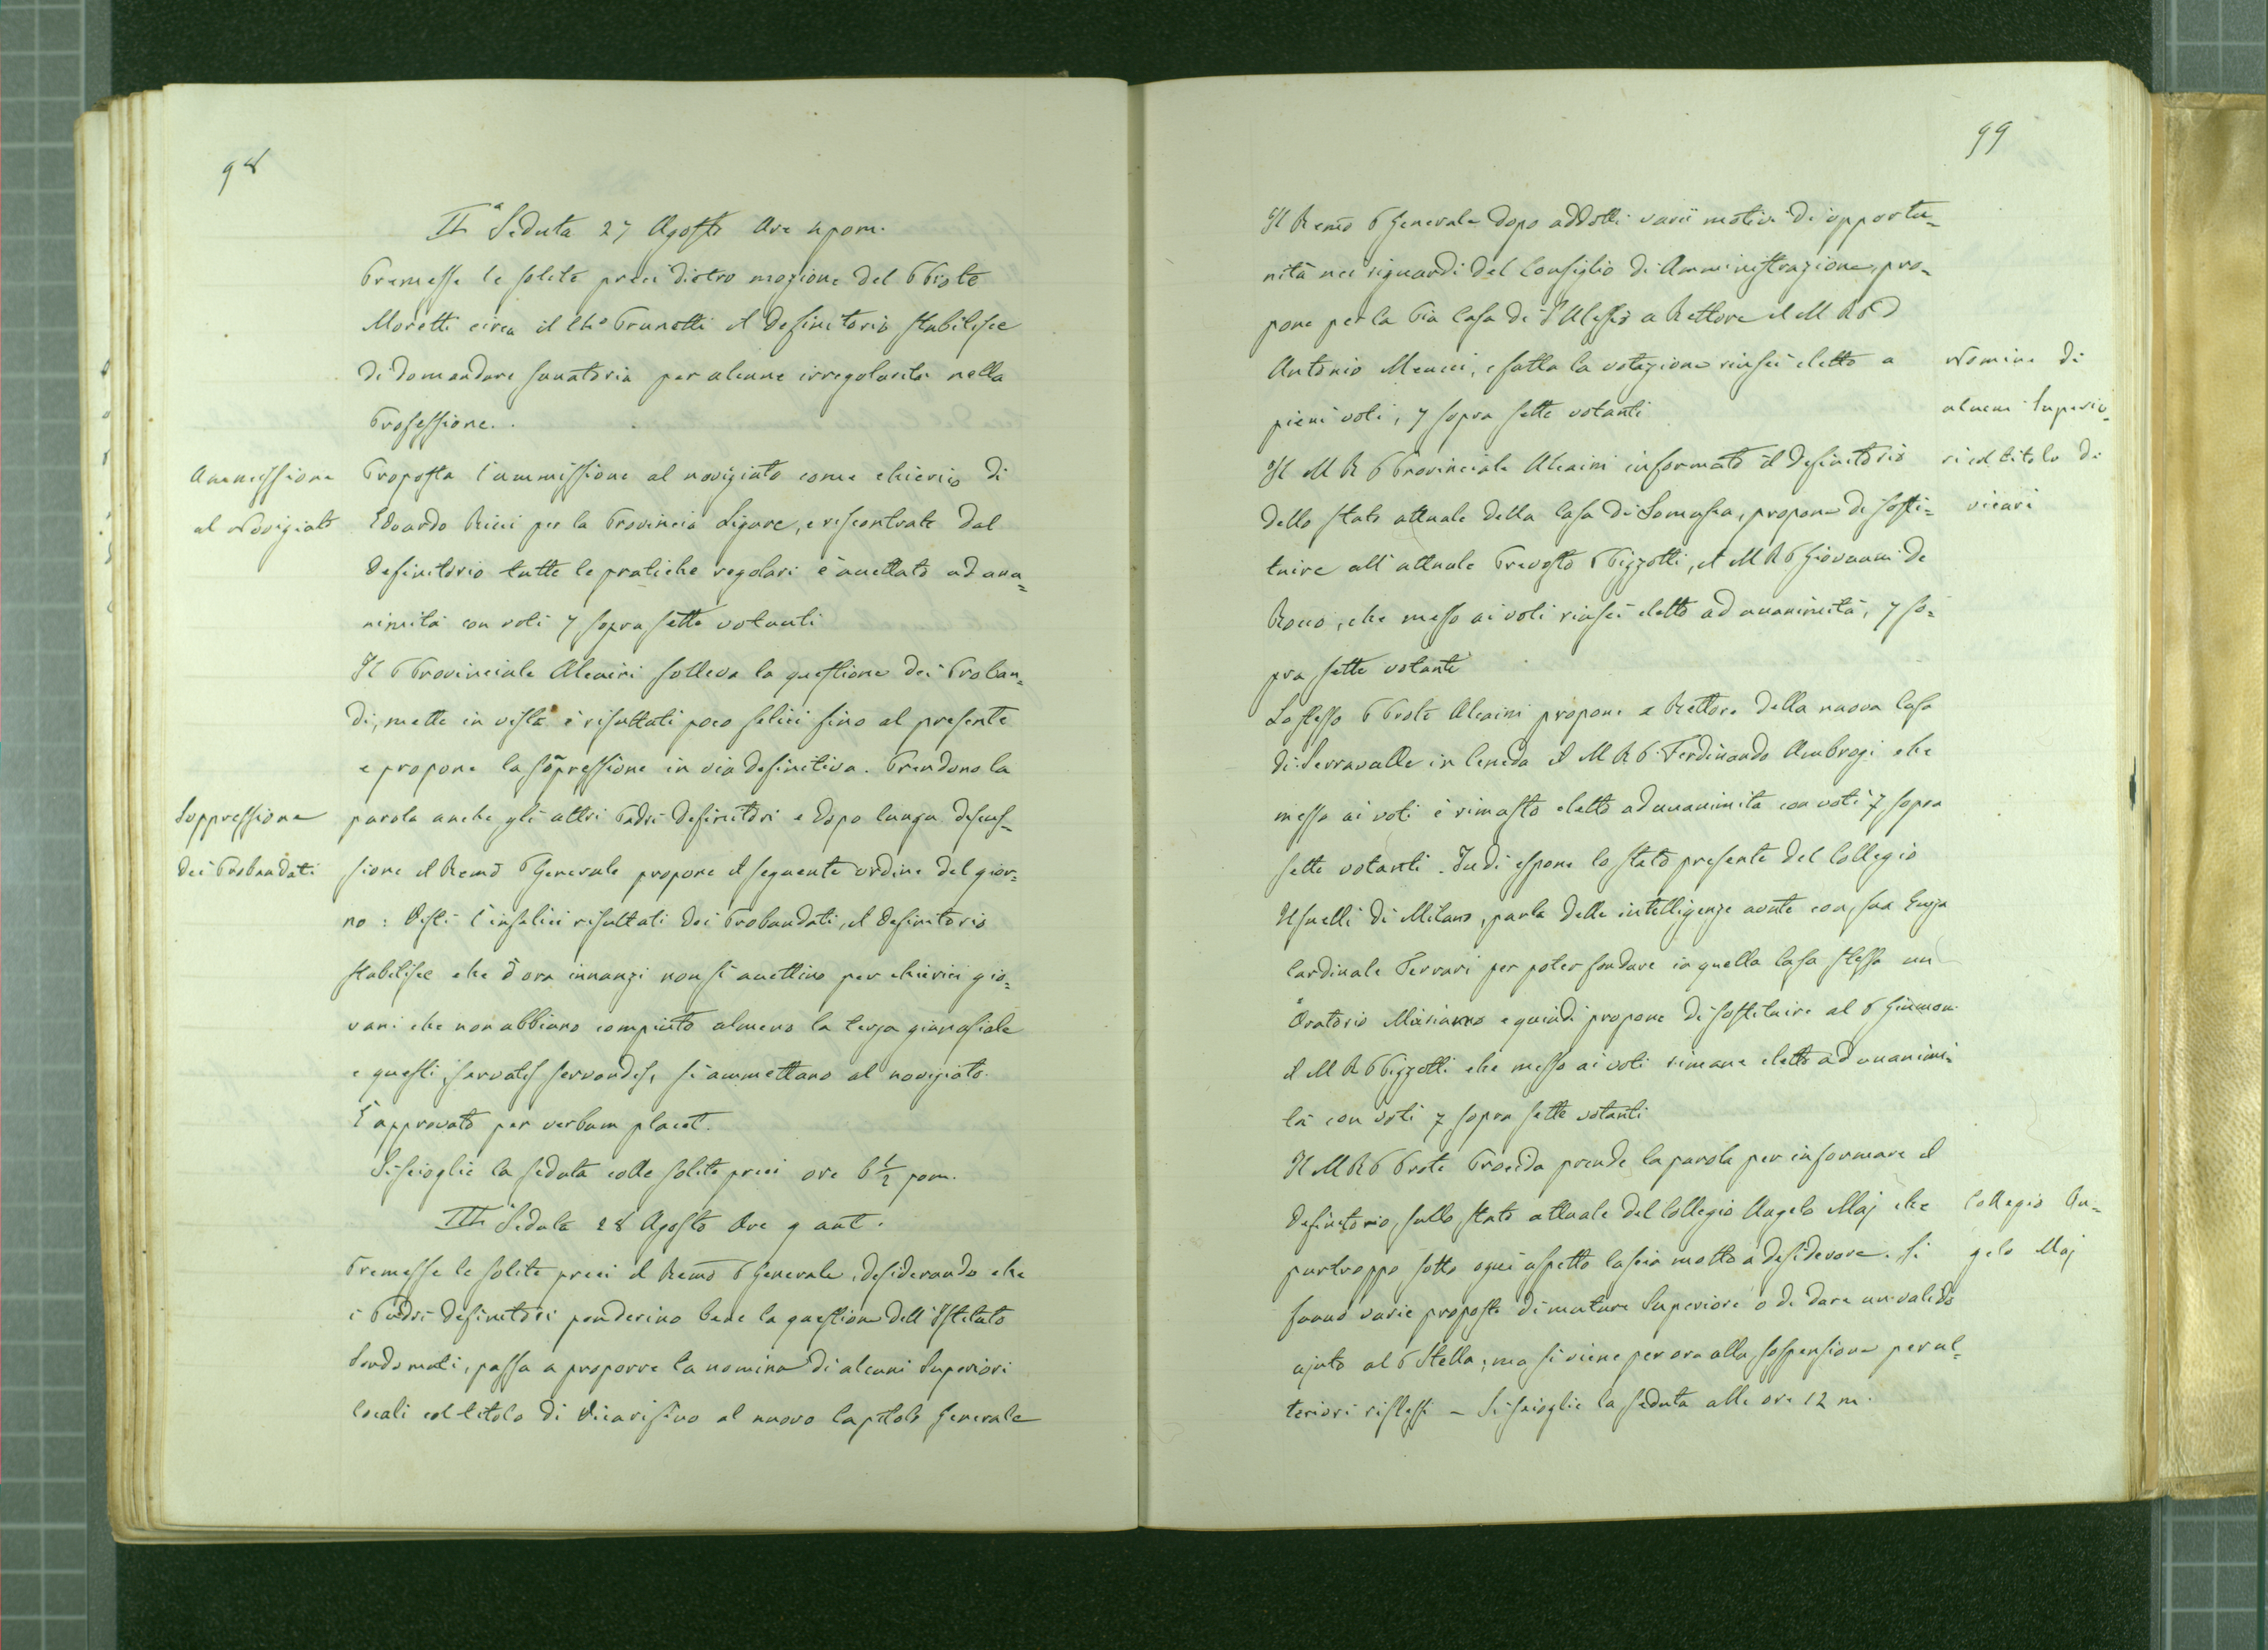 98
IIª Seduta 27 Agosto Ore 4 pom.
Premesse le solite preci dietro mozione del P Prole
Moretti circa il Ch.º Prunotti il Definitorio stabilisce
di domandare sanatoria per alcune irregolarità nella
Professione.
Ammissione
al Noviziato
Proposta l'ammissione al noviziato come chierico di
Edoardo Ricci per la Provincia Ligure, e riscontrate dal
Definitorio tutte le pratiche regolari è accettato ad una=
nimità con voti 7 sopra sette votanti
Il P Provinciale Alcaini solleva la questione dei Proban=
di, mette in vista i risultati poco felici fino al presente
e propone la soppressione in via definitiva. Prendono la
Soppressione
dei Probandati
parola anche gli altri Padri Definitori e dopo lunga discus=
sione il Remo P Generale propone il seguente ordine del gior=
no: Visti l'infelici risultati dei Probandati, il Definitorio
stabilisce che d'ora innanzi non si accettino per chierici gio=
vani che non abbiano compiuto almeno la terza ginnasiale
e questi, servatis servandis, si ammettano al noviziato.
È approvato per verbum placet.
Si scioglie la seduta colle solite preci ore 6 1/2 pom.
IIIª Seduta 28 Agosto Ore 9 ant.
Premesse le solite preci il Remo P Generale, desiderando che
i Padri Definitori ponderino bene la questione dell'Istituto
Sordomuti, passa a proporre la nomina di alcuni Superiori
locali col titolo di Vicari fino al nuovo Capitolo Generale
99
Il Remo P Generale dopo addotti varii motivi di opportu=
nità nei riguardi del Consiglio di Amministrazione, pro=
pone per la Pia Casa di S Alessio a Rettore il M R P D
Antonio Meucci, e fatta la votazione riuscì eletto a
pieni voti, 7 sopra sette votanti
Nomine di
alcuni Superio=
ri col titolo di
vicari
Il M R P Provinciale Alcaini informato il Definitorio
dello stato attuale della Casa di Somasca, propone di sosti=
tuire all'attuale Prevosto P Pizzotti, il M R P Giovanni De
Rocco, che messo ai voti riuscì eletto ad unanimità, 7 so=
pra sette votanti
Lo stesso P Prole Alcaini propone a Rettore della nuova Casa
di Serravalle in Ceneda il M R P. Ferdinando Ambrogi che
messo ai voti è rimasto eletto ad unanimità con voti 7 sopra
sette votanti. Indi espone lo stato presente del Collegio
Usuelli di Milano, parla delle intelligenze avute con sua Emza
Cardinale Ferrari per poter fondare in quella Casa stessa un
Oratorio Mariano e quindi propone di sostituire al P
il M R P Pizzotti che messo ai voti rimane eletto ad unanimi=
tà con voti 7 sopra sette votanti
Il M R P Prole Procida prende la parola per informare il
Definitorio, sullo stato attuale del Collegio Angelo Maj che
Collegio An=
gelo Maj
purtroppo sotto ogni aspetto lascia molto a desiderare. Si
fanno varie proposte di mutare Superiore o di dare un valido
ajuto al P Stella; ma si viene per ora alla sospensione per ul=
teriori riflessi – Si scioglie la seduta alle ore 12 m.